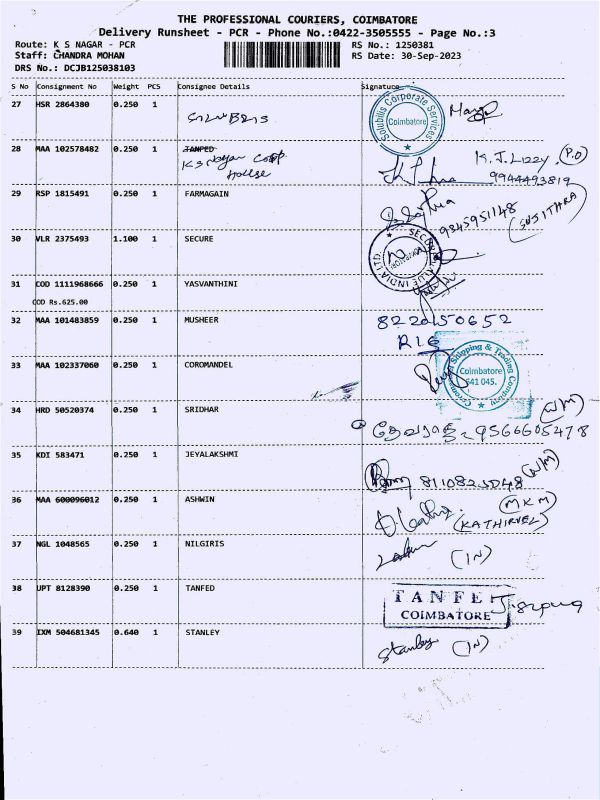 THE PROFESSIONAL COURIERS, COIMBATORE
Delivery Runsheet - PCR - Phone No.:0422-3505555 - Page No.:3
Route: K S NAGAR - PCR RS No.: 1250381
Staff: CHANDRA MOHAN RS Date: 30-Sep-2023
DRS No.: DCJB125038103
S No Consignment No Weight PCS Consignee Details Signature
27 HSR 2864380 0.250 1
Solubilis Corporate Services
Coimbatore
28 MAA 102578482 0.250 1 TANFED K.J. Lizzy (P.O)
House 9944493819
29 RSP 1815491 0.250 1 FARMAGAIN
9345951148
(SUJITHRA)
30 VLR 2375493 1.100 1 SECURE
INDIA LTD.
31 COD 1111968666 0.250 1 YASVANTHINI
COD Rs.625.00
32 MAA 101483859 0.250 1 MUSHEER 8220150652
33 MAA 102337060 0.250 1 COROMANDEL
Coromandel Shipping & Trading Company
Coimbatore
641 045.
34 HRD 50520374 0.250 1 SRIDHAR
9566605478
35 KDI 583471 0.250 1 JEYALAKSHMI
36 MAA 600096012 0.250 1 ASHWIN (MKM)
(KATHIRVEL)
37 NGL 1048565 0.250 1 NILGIRIS (IN)
38 UPT 8128390 0.250 1 TANFED TANFE
COIMBATORE
39 IXM 504681345 0.640 1 STANLEY Stanley (IN)